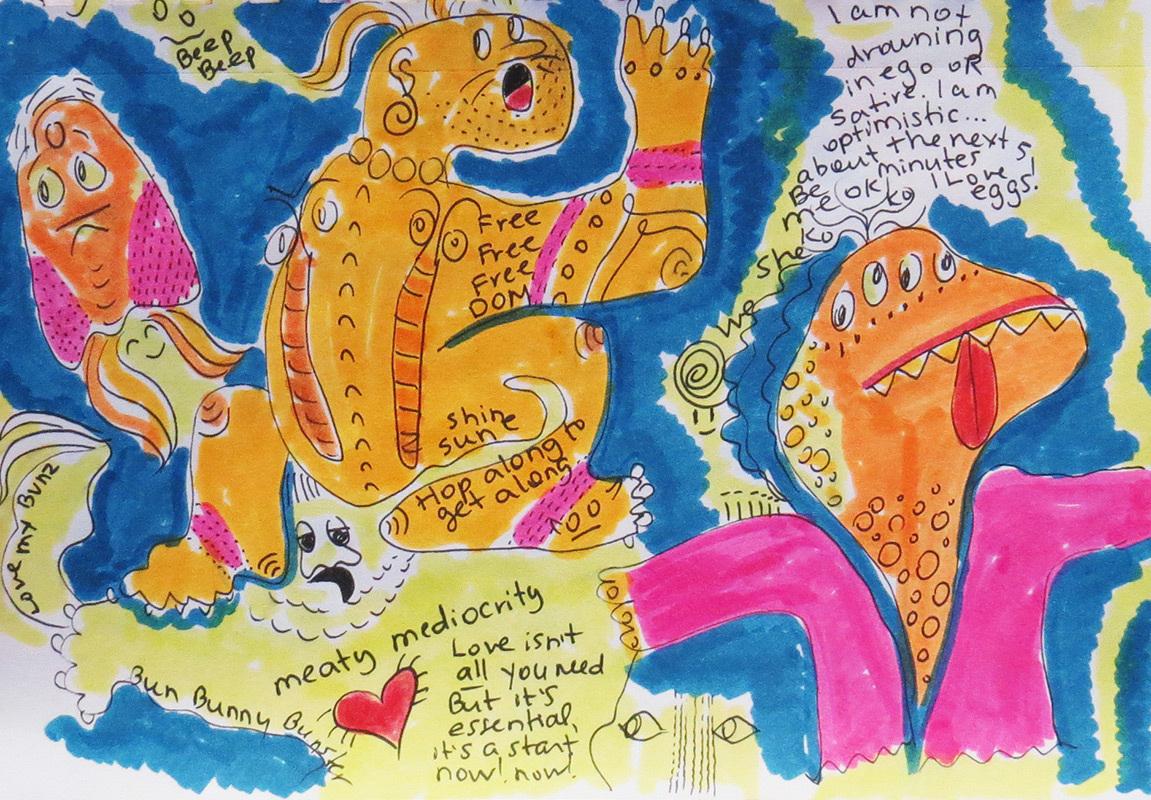 Beep
Beep
I am not
drowning
in ego or
satire. I am
optimistic...
about the next 5
minutes
Be OK I Love
eggs!
Free
Free
Free
DOM
shine
sun
Hop along to
get along
Love my Bunz
meaty mediocrity
Love isn't
all you need
But it's
essential,
it's a start
now! now!
Bun Bunny